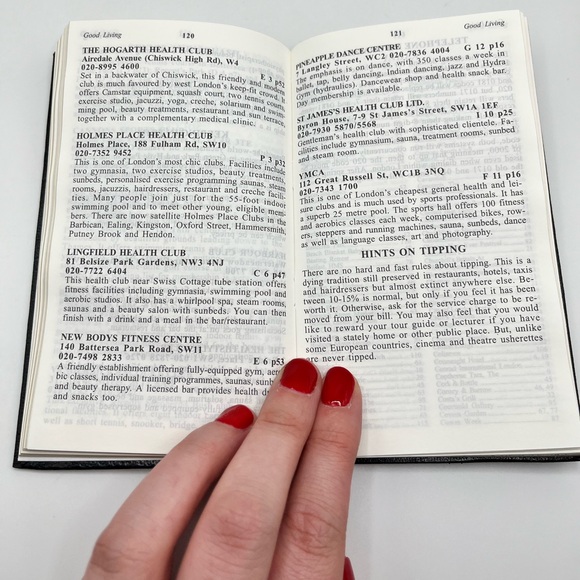 Good Living 120
THE HOGARTH HEALTH CLUB
Airedale Avenue (Chiswick High Rd), W4
020-8995 4600 E 3 p52
Set in a backwater of Chiswick, this friendly and modern
club is much favoured by west London's keep-fit crowd. It
offers Gamstar equipment, squash court, two tennis courts,
exercise studio, jacuzzi, yoga, creche, solarium and swim-
ming pool, beauty treatments, restaurant and sun terrace,
together with a complementary medical clinic.
HOLMES PLACE HEALTH CLUB
Holmes Place, 188 Fulham Rd, SW10
020-7352 9452 P 3 p32
This is one of London's most chic clubs. Facilities include
two gymnasia, two exercise studios, beauty treatments,
sunbeds, personalised exercise programming saunas, steam
rooms, jacuzzis, hairdressers, restaurant and creche facili-
ties. Many people join just for the 55-foot indoor
swimming pool and to meet other young, eligible mem-
bers. There are now satellite Holmes Place Clubs in the
Barbican, Ealing, Kingston, Oxford Street, Hammersmith,
Putney Brook and Hendon.
LINGFIELD HEALTH CLUB
81 Belsize Park Gardens, NW3 4NJ
020-7722 6404 C 6 p47
This health club near Swiss Cottage tube station offers
fitness facilities including gymnasia, swimming pool and
aerobic studios. It also has a whirlpool spa, steam rooms,
saunas and a beauty salon with sunbeds. You can then
finish with a drink and a meal in the bar/restaurant.
NEW BODYS FITNESS CENTRE
140 Battersea Park Road, SW11
020-7498 2833 E 6 p53
A friendly establishment offering fully-equipped gym, aero-
bic classes, individual training programmes, saunas, sunbeds
and beauty therapy. A licensed bar provides health
and snacks too.
121 Good Living
PINEAPPLE DANCE CENTRE G 12 p16
7 Langley Street, WC2 020-7836 4004
The emphasis is on dance, with 350 classes a week in
ballet, tap, belly dancing, Indian dancing, jazz and Hydra
Gym (hydraulics). Dancewear shop and health snack bar.
Day membership is available.
ST JAMES'S HEALTH CLUB LTD.
Byron House, 7-9 St James's Street, SW1A 1EF
020-7930 5870/5568 I 10 p25
Gentleman's health club with sophisticated clientele. Fa-
cilities include gymnasium, sauna, treatment rooms, sunbed
and steam room.
YMCA
112 Great Russell St, WC1B 3NQ
020-7343 1700 F 11 p16
This is one of London's cheapest general health and lei-
sure clubs and is much used by sports professionals. It has
a superb 25 metre pool. The sports hall offers 100 fitness
and aerobics classes each week, computerised bikes, row-
ers, steppers and running machines, sauna, sunbeds, dance
as well as language classes, art and photography.
HINTS ON TIPPING
There are no hard and fast rules about tipping. This is a
dying tradition still preserved in restaurants, hotels, taxis
and hairdressers but almost extinct anywhere else. Be-
tween 10-15% is normal, but only if you feel it has been
worth it. Otherwise, ask for the service charge to be re-
moved from your bill. You may also feel that you would
like to reward your tour guide or lecturer if you have
visited a stately home or other public place. But, unlike
some European countries, cinema and theatre usherettes
are never tipped.